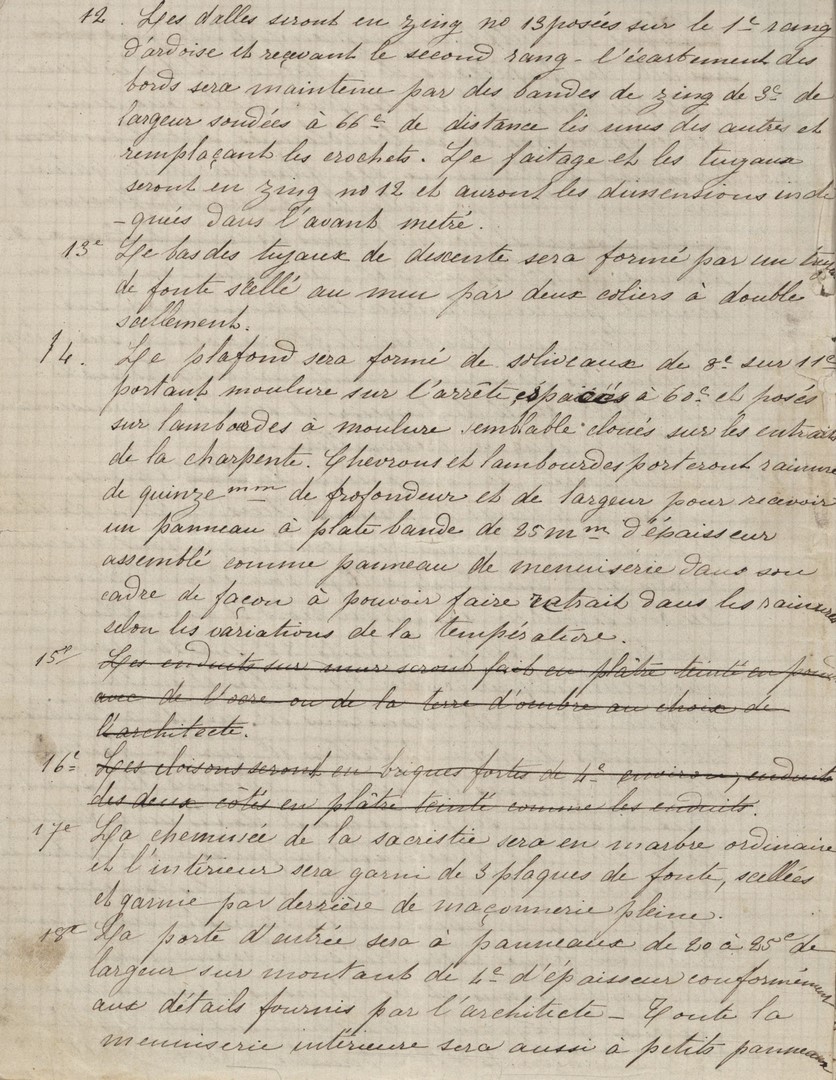 12. Les dalles seront en zing no 13 posées sur le 1er rang
d'ardoise et reçevant le second rang - l'écartement des
bords sera maintenue par des bandes de zing de 3c de
largeur soudées à 66c de distance les unes des autres et
remplaçant les crochets. Le faitage et les tuyaux
seront en zing no 12 et auront les dimensions indi
-quées dans l'avant metré.
13e Le bas des tuyaux de descente sera formé par un tuyau
de fonte scellé au mur par deux coliers à double
scellement.
14. Le plafond sera formé de soliveaux de 8c sur 11c
portant moulure sur l'arrête espacés à 60c et posés
sur lambordes à moulure semblable cloués sur les entraits
de la charpente. Chevrons et lambourdes porteront rainure
de quinze mm de profondeur et de largeur pour recevoir
un panneau à plate bande de 25 mm d'épaisseur
assemblé comme panneau de menuiserie dans son
cadre de façon à pouvoir faire retrait dans les rainures
selon les variations de la température.
15e Les enduits sur murs seront fait en plâtre teinté en
avec de l'ocre ou de la terre d'ombre au choix de
l'architecte.
16e Les cloisons seront en briques fortes de 4c environ, enduits
des deux côtés en plâtre teinté comme les enduits.
17e La cheminée de la sacristie sera en marbre ordinaire
et l'intérieur sera garni de 3 plaques de fonte, scellées
et garnie par derrière de maçonnerie pleine.
18e La porte d'entrée sera à panneaux de 20 à 25c de
largeur sur montant de 4c d'épaisseur conformément
aux détails fournis par l'architecte - Toute la
menuiserie intérieure sera aussi à petits panneaux